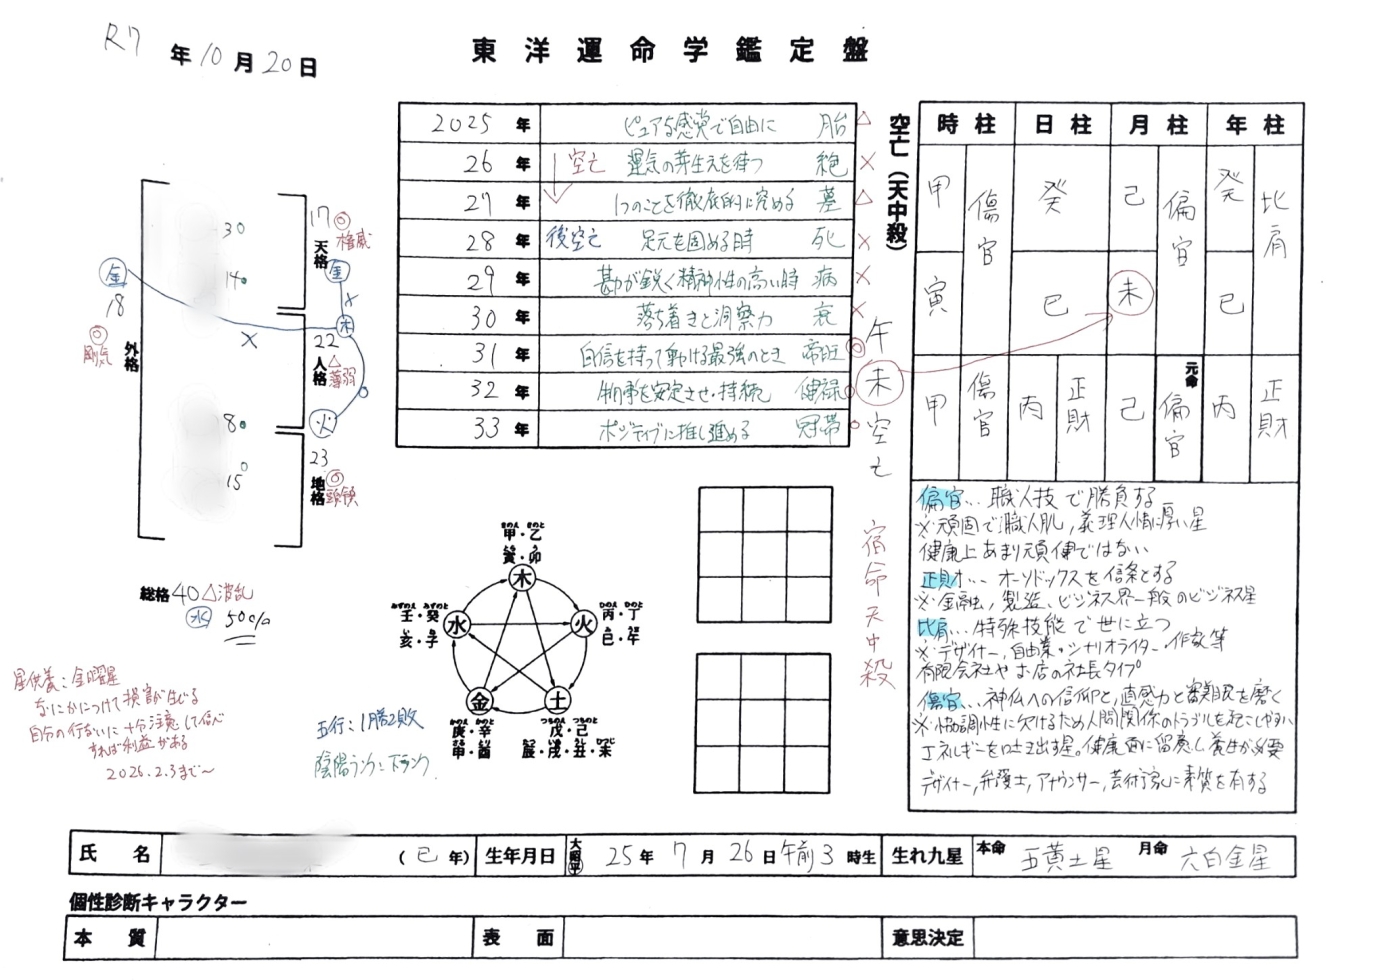 R7年10月20日
東洋運命学鑑定盤
2025年 ピュアな感覚で自由に 胎 △
26年 空亡 運気の芽生えを待つ 絶 ×
27年 1つのことを徹底的に究める 墓 △
28年 後空亡 足元を固める時 死 ×
29年 勘が鋭く精神性の高い時 病 ×
30年 落ち着きと洞察力 衰 ×
31年 自信を持って動ける最強のとき 帝旺 ◎
32年 物事を安定させ・持続 健禄 ○
33年 ポジティブに推し進める 冠帯 ○
空亡(天中殺)
午
未
空
亡
宿命天中殺
時柱 日柱 月柱 年柱
甲 傷官 癸 己 偏官 癸 比肩
寅 巳 未 巳
元命
甲 傷官 丙 正財 己 偏官 丙 正財
偏官…職人技で勝負する
※頑固で職人肌,義理人情に厚い星
健康上あまり頑健ではない
正財…オーソドックスを信条とする
※金融,製造、ビジネス界一般のビジネス星
比肩…特殊技能で世に立つ
※デザイナー,自由業・シナリオライター・作家等
有限会社やお店の社長タイプ
傷官…神仏への信仰と,直感力と審美眼を磨く
※協調性に欠けるため人間関係のトラブルを起こしやすい
エネルギーを吐き出す星,健康面に留意し養生が必要
デザイナー,弁護士,アナウンサー,芸術家に素質を有する
30
14
8
15
17 ◎
天格 権威
金
×
木
22
人格 △ 薄弱
火
23
地格 ◎ 頭領
金
18
◎
剛気
外格
×
総格 40 △波乱
水 50%
星供養:金曜星
なにかにつけて損害が生じる
自分の行ないに十分注意して信心
すれば利益がある
2026.2.3まで〜
五行:1勝2敗
陰陽ランク:下ランク
きのえ きのと
甲・乙
寅・卯
木
みずのえ みずのと
壬・癸
亥・子
水
ひのえ ひのと
丙・丁
巳・午
火
金
かのえ かのと
庚・辛
さる とり
申・酉
土
つちのえ つちのと
戊・己
たつ いぬ うし ひつじ
辰・戌・丑・未
氏名 (巳年) 生年月日 大昭平 25年7月26日午前3時生 生れ九星 本命 五黄土星 月命 六白金星
個性診断キャラクター
本質 表面 意思決定